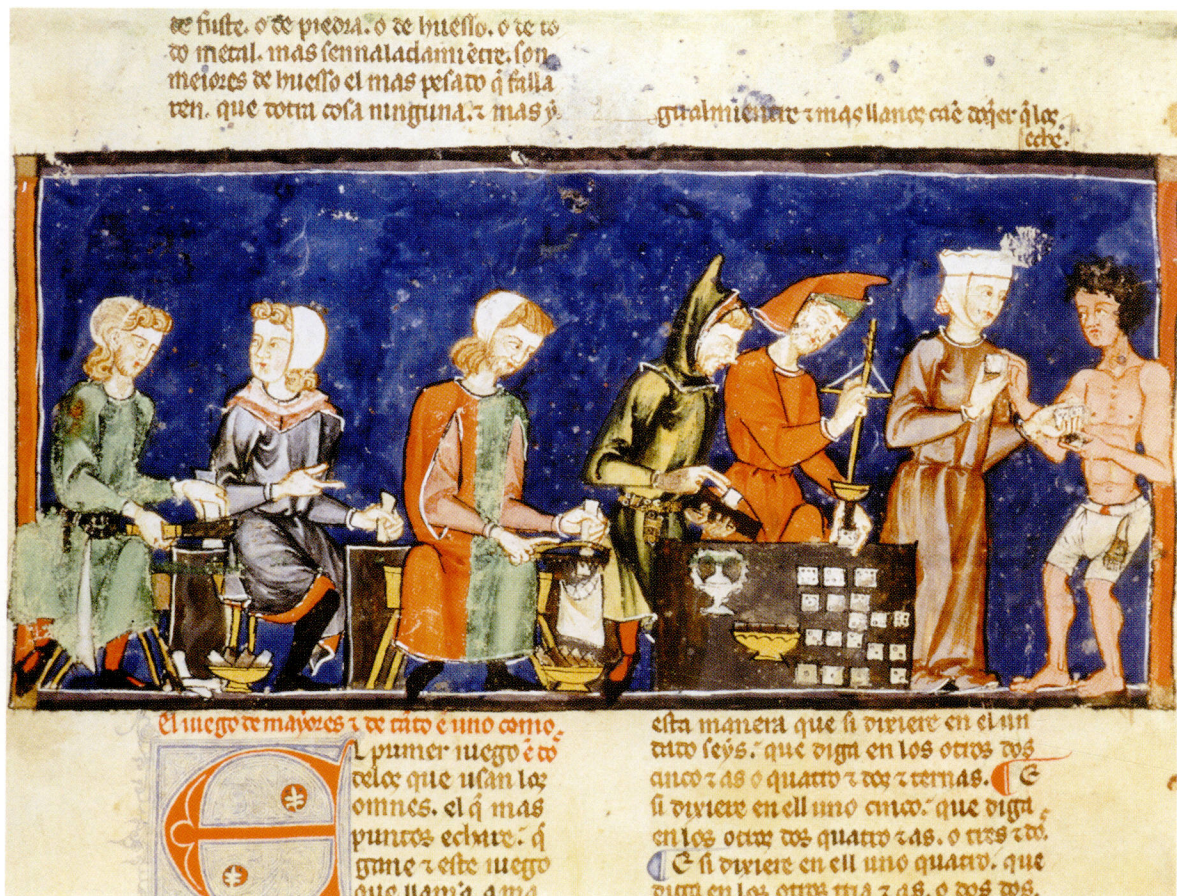 de fuste. o de piedra. o de huesso. o de to
do metal. mas sennaladamiẽtre. son
meiores de huesso el mas pesado q̃ falla
ren. que dotra cosa ninguna. ⁊ mas y
gualmientre ⁊ mas llanos caẽ doq̃er q̃ los
eche.
El iuego de mayores ⁊ de tãto ẽ uno como
El primer iuego ẽ to
delos que usan los
omnes. el q̃ mas
puntos echare. q̃
gane ⁊ este iuego
que llamã a ma
esta manera que si dixiere en el un
dado seys. que diga en los otros dos
cinco ⁊ as o quatro ⁊ dos ⁊ ternas. ¶ E
si dixiere en ell uno cinco. que diga
en los otros dos quatro ⁊ as. o tres ⁊ do.
¶ E si dixiere en ell uno quatro. que
diga en los otros tria ⁊ as. o dos dos.